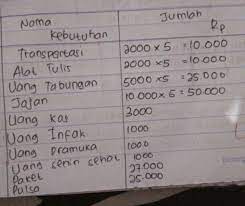 Nama Kebutuhan Jumlah Rp
Transportasi 2000 x 5 = 10.000
Alat Tulis 2000 x 5 = 10.000
Uang Tabungan 5000 x 5 = 25.000
Jajan 10.000 x 5 = 50.000
Uang kas 2000
Uang Infak 1000
Uang Pramuka 1000
Uang senin sehat 1000
Paket 27.000
Pulsa 25.000